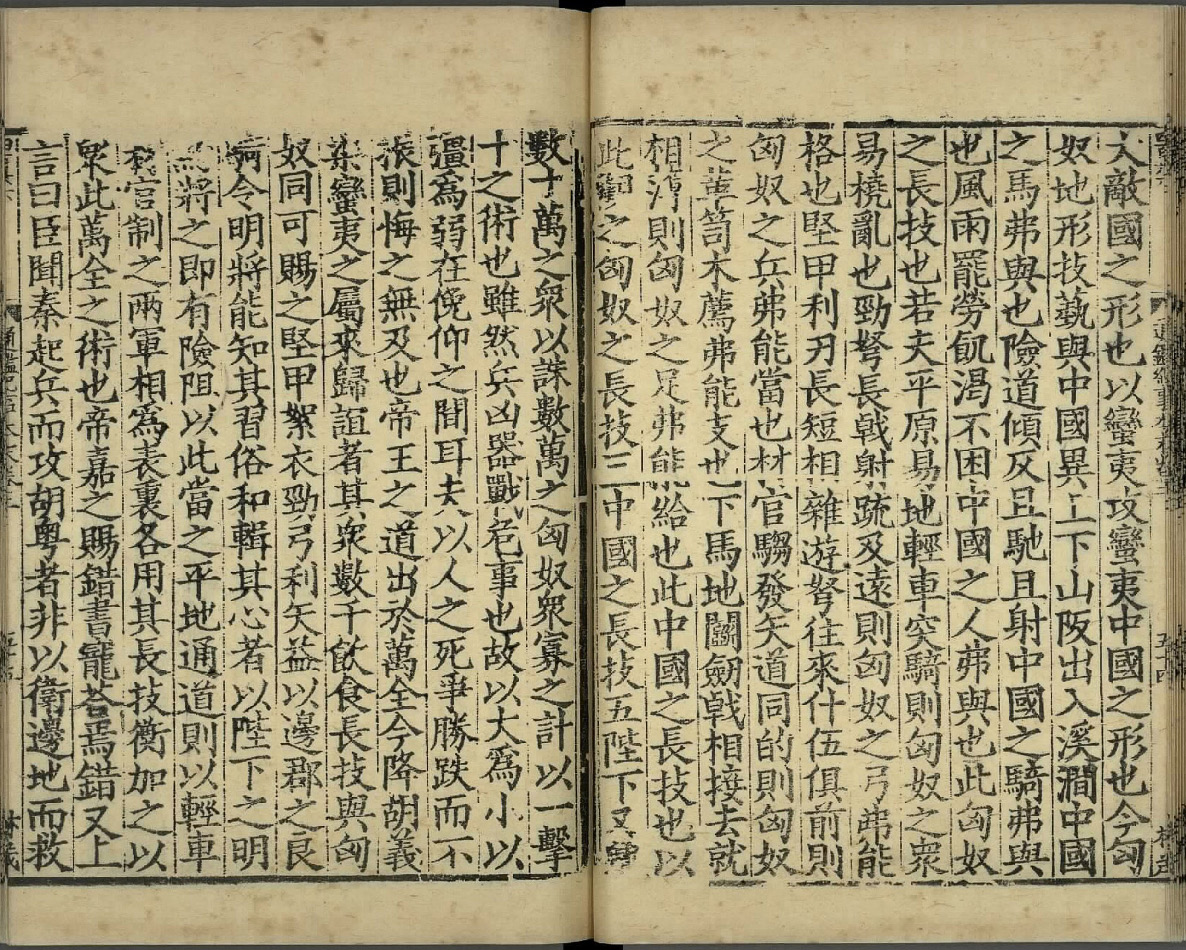 大敵國之形也以蠻夷攻蠻夷中國之形也今匈
奴地形技藝與中國異上下山阪出入溪澗中國
之馬弗與也險道傾仄且馳且射中國之騎弗與
也風雨罷勞飢渴不困中國之人弗與也此匈奴
之長技也若夫平原易地輕車突騎則匈奴之衆
易橈亂也勁弩長戟射疏及遠則匈奴之弓弗能
格也堅甲利刃長短相雜遊弩往來什伍俱前則
匈奴之兵弗能當也材官騶發矢道同的則匈奴
之革笥木薦弗能支也下馬地鬭劒戟相接去就
相薄則匈奴之足弗能給也此中國之長技也以
此觀之匈奴之長技三中國之長技五陛下又
數十萬之衆以誅數萬之匈奴衆寡之計以一擊
十之術也雖然兵凶器戰危事也故以大爲小以
彊爲弱在俛仰之間耳夫以人之死爭勝跌而不
振則悔之無及也帝王之道出於萬全今降胡義
渠蠻夷之屬來歸誼者其衆數千飲食長技與匈
奴同可賜之堅甲絮衣勁弓利矢益以邊郡之良
騎令明將能知其習俗和輯其心者以陛下之明
將之即有險阻以此當之平地通道則以輕車
材官制之兩軍相爲表裏各用其長技衡加之以
衆此萬全之術也帝嘉之賜錯書寵荅焉錯又上
言曰臣聞秦起兵而攻胡粵者非以衛邊地而救